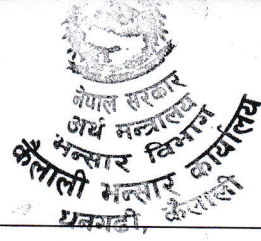 नेपाल सरकार
अर्थ मन्त्रालय
भन्सार विभाग
कैलाली भन्सार कार्यालय
धनगढी, कैलाली